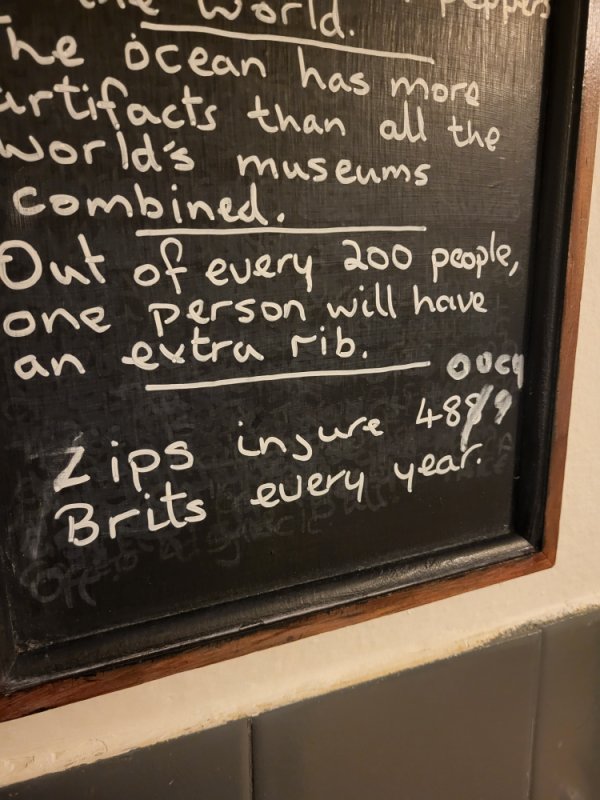 the World. peppers
The ocean has more
artifacts than all the
World's museums
combined.
Out of every 200 people,
one person will have
an extra rib.
oucy
Zips insure 4889
Brits every year.